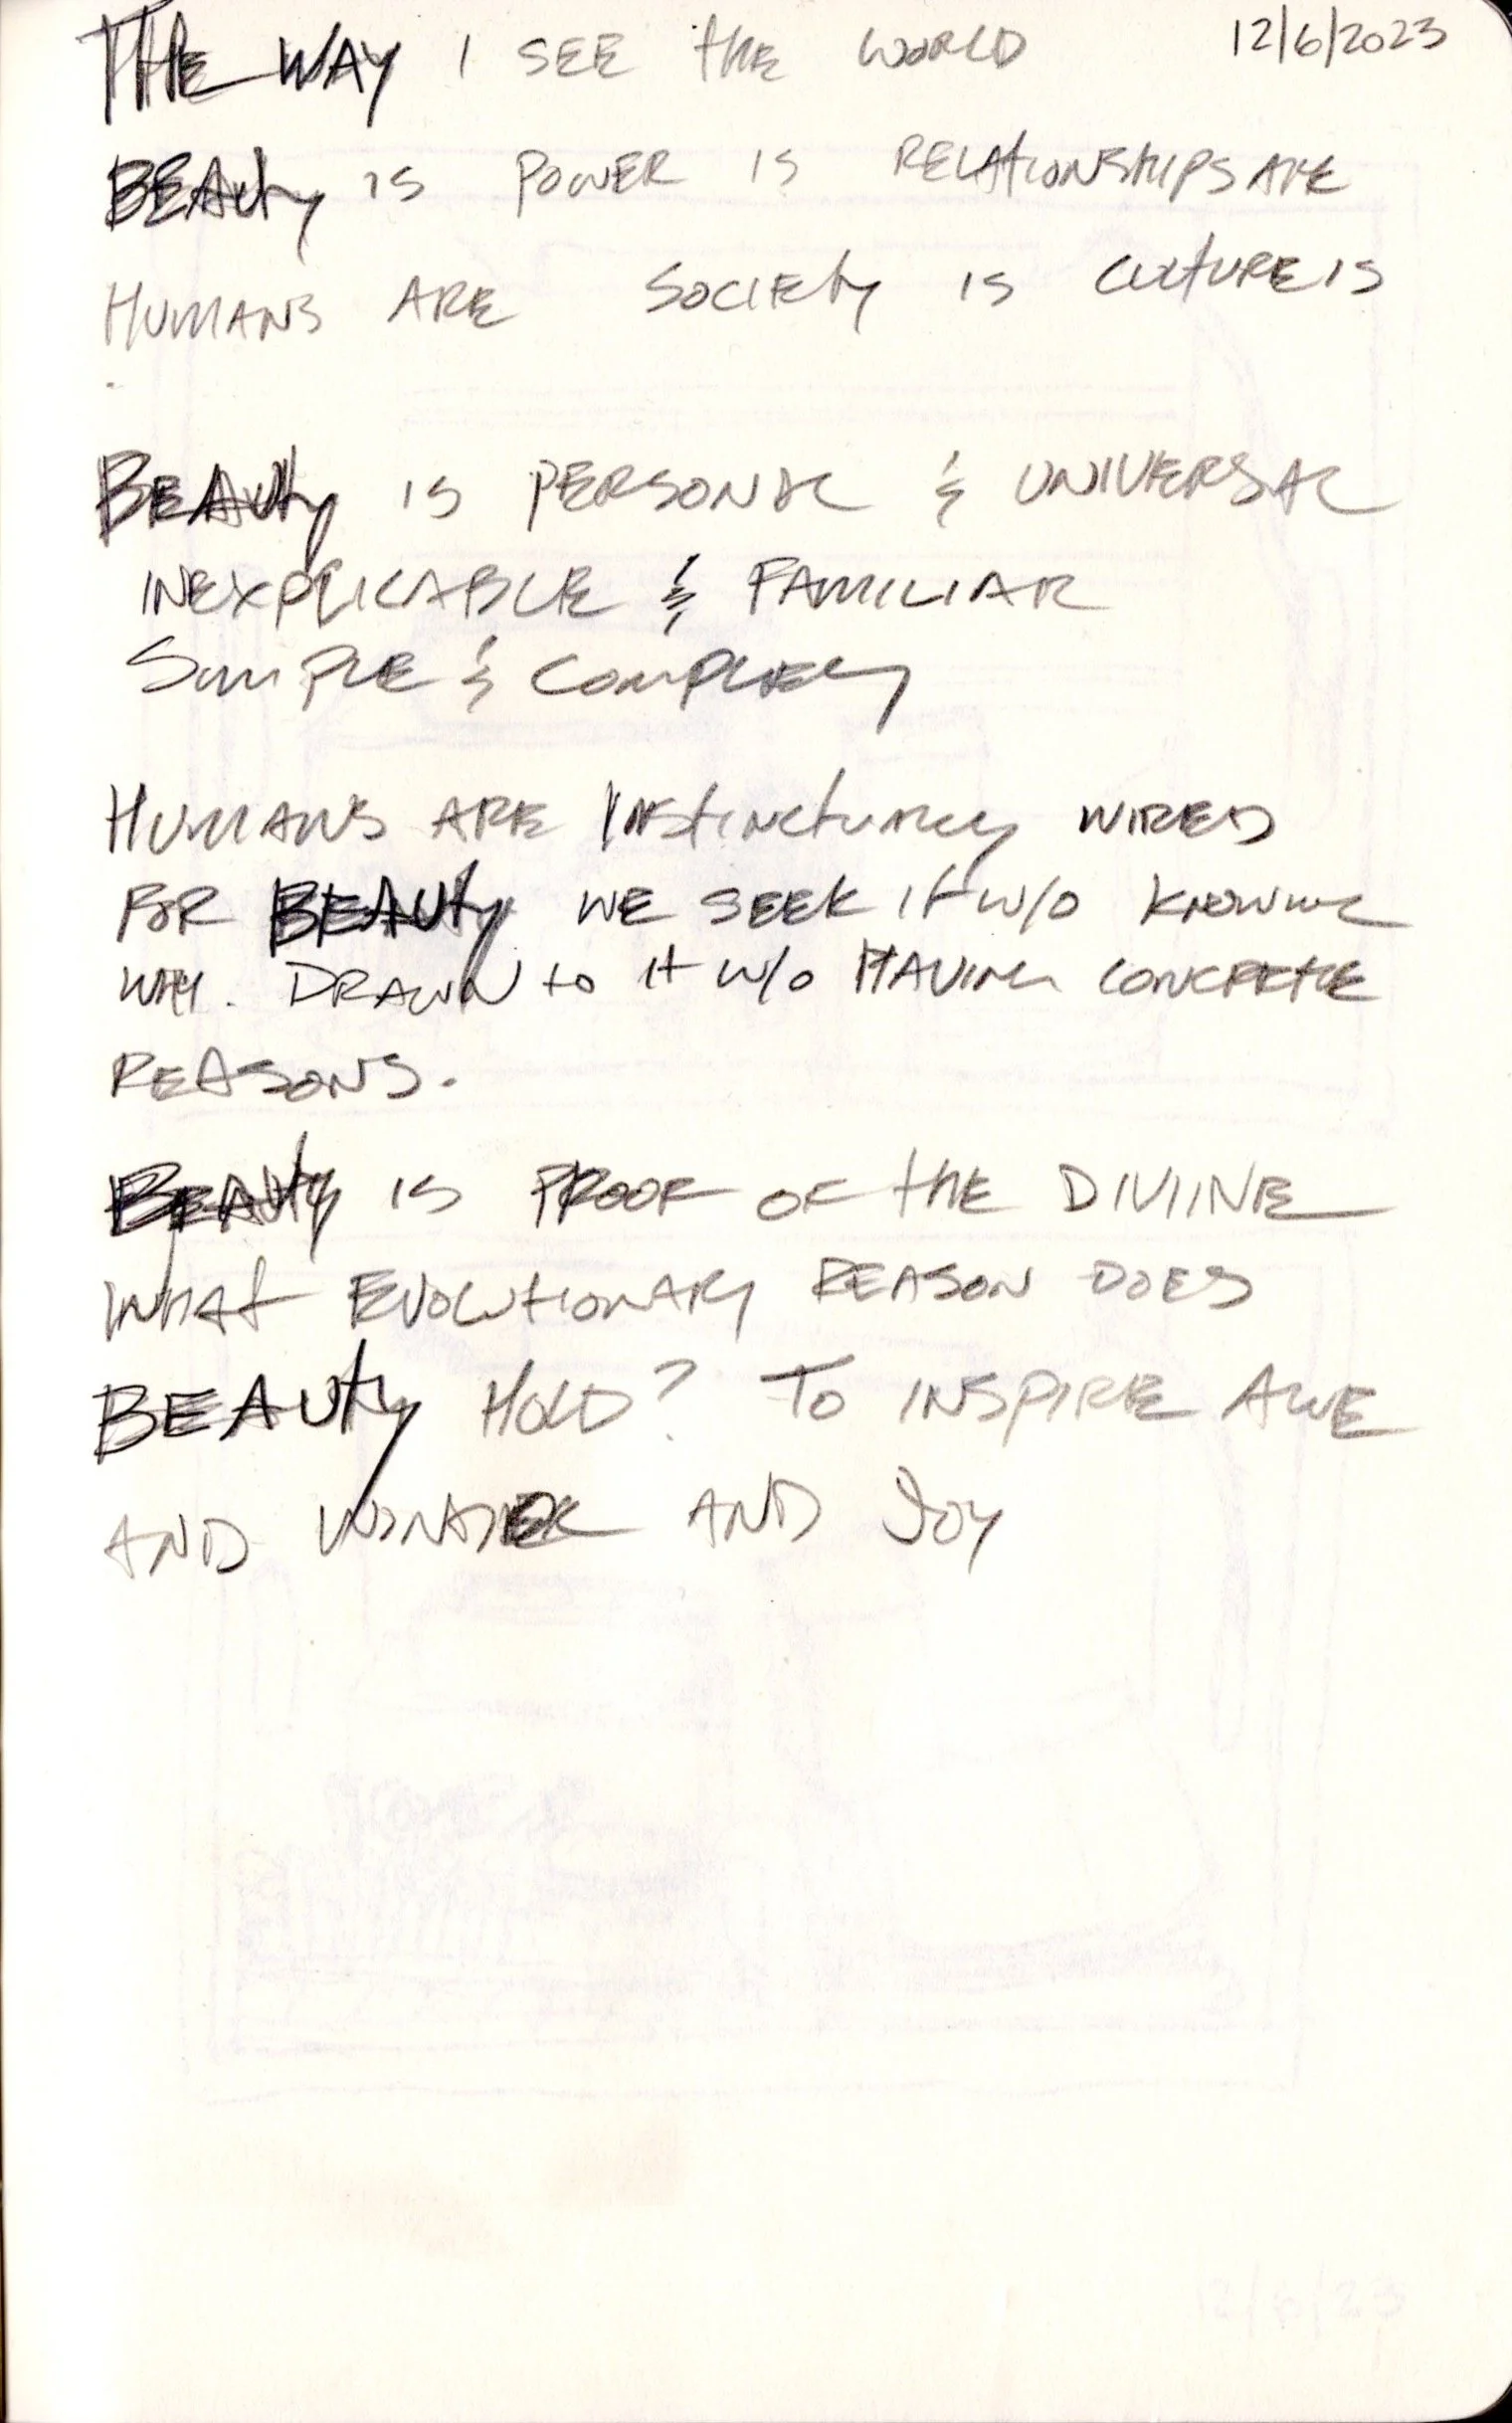 THE WAY I SEE THE WORLD 12/6/2023
BEAUTY IS POWER IS RELATIONSHIPS ARE
HUMANS ARE SOCIETY IS CULTURE IS
BEAUTY IS PERSONAL & UNIVERSAL
INEXPLICABLE & FAMILIAR
SIMPLE & COMPLEX
HUMANS ARE INSTINCTUALLY WIRED
FOR BEAUTY WE SEEK IT W/O KNOWING
WHY. DRAWN TO IT W/O HAVING CONCRETE
REASONS.
BEAUTY IS PROOF OF THE DIVINE
WHAT EVOLUTIONARY REASON DOES
BEAUTY HOLD? TO INSPIRE AWE
AND WONDER AND JOY
12/6/23